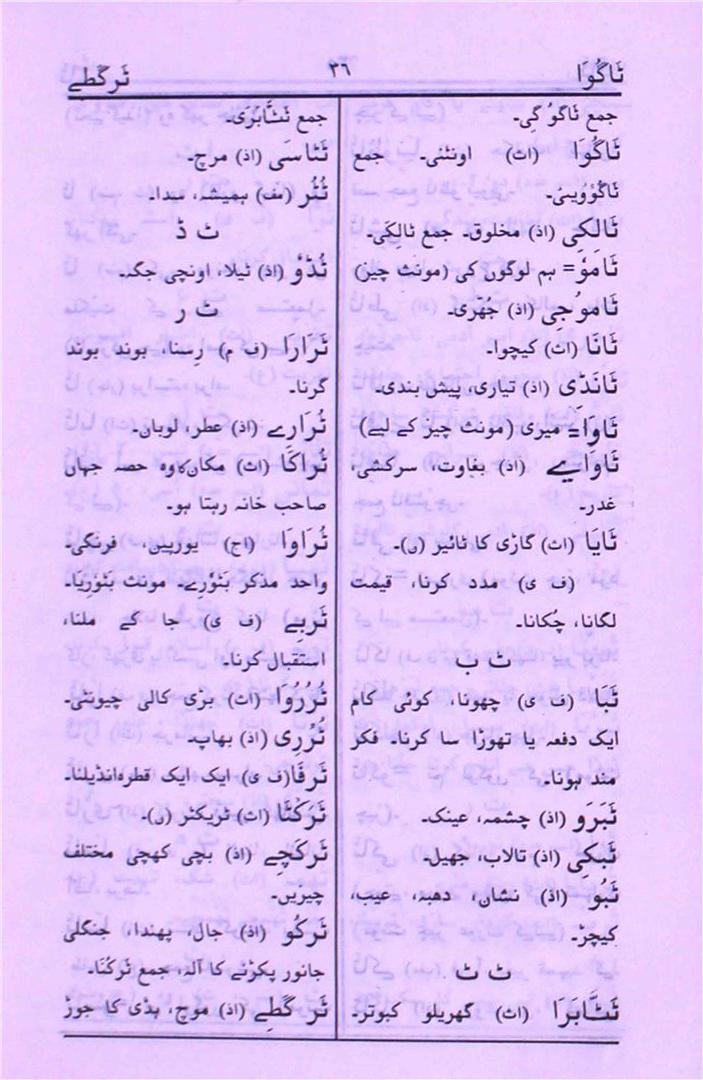 ٹاگُوَا
۳۶
ٹَرگَطے
جمع ٹاگوُ گی۔
ٹاگُوَا (اث) اونٹنی۔ جمع
ٹاگُوُوینی۔
ٹَالِکِی (اذ) مخلوق۔ جمع ٹالِکَی۔
ٹَامَوْ= ہم لوگوں کی (مونث چیز)
ٹَامو ُجِی (اذ) جُھڑی۔
ٹَانَا (اث) کیچوا۔
ٹَانَڈِی (اذ) تیاری، پیش بندی۔
ٹَاوَا= میری (مونث چیز کے لیے)
ٹَاوَایے (اذ) بغاوت، سرکشی،
غدر۔
ٹَایَا (اث) گاڑی کا ٹائیر (ں)۔
(ف ی) مدد کرنا، قیمت
لگانا، چُکانا۔
ٹ ب
ٹَبَا (ف ی) چھونا، کوئی کام
ایک دفعہ یا تھوڑا سا کرنا۔ فکر
مند ہونا۔
ٹَبَرَو (اذ) چشمہ، عینک۔
ٹَبکِی (اذ) تالاب، جھیل۔
ٹَبُو (اذ) نشان، دھبہ، عیب،
کیچڑ۔
ٹ ٹ
ٹَٹَّابَرَا (اث) گھریلو کبوتر۔
جمع ٹَٹَّابَرَی۔
ٹَٹَاسَی (اذ) مرچ۔
ٹُٹُر (مف) ہمیشہ، سدا۔
ٹ ڈ
ٹُڈوْ (اذ) ٹیلا، اونچی جگہ۔
ٹ ر
ٹَرَارَا (ف م) رِسنا، بوند بوند
گرنا۔
ٹُرَارے (اذ) عطر، لوبان۔
ٹُرَاکَا (اث) مکان کا وہ حصہ جہاں
صاحب خانہ رہتا ہو۔
ٹُرَاوَا (اج) یورپین، فرنگی۔
واحد مذکر بَٹوُرے۔ مونث بَٹوُریَا۔
ٹَربے (ف ی) جا کے ملنا،
استقبال کرنا۔
ٹُرُروَا (اث) بڑی کالی چیونٹی۔
ٹُرُرِی (اذ) بھاپ۔
ٹَرفَا(ف ی) ایک ایک قطرہ انڈیلنا۔
ٹَرَکٹَا (اث) ٹریکٹر (ں)۔
ٹَرکَچے (اذ) بچی کھچی مختلف
چیزیں۔
ٹَرکو (اذ) جال، پھندا، جنگلی
جانور پکڑنے کا آلہ، جمع ٹَرکُنَا۔
ٹَر گَطے (اذ) موچ، ہڈی کا جوڑ